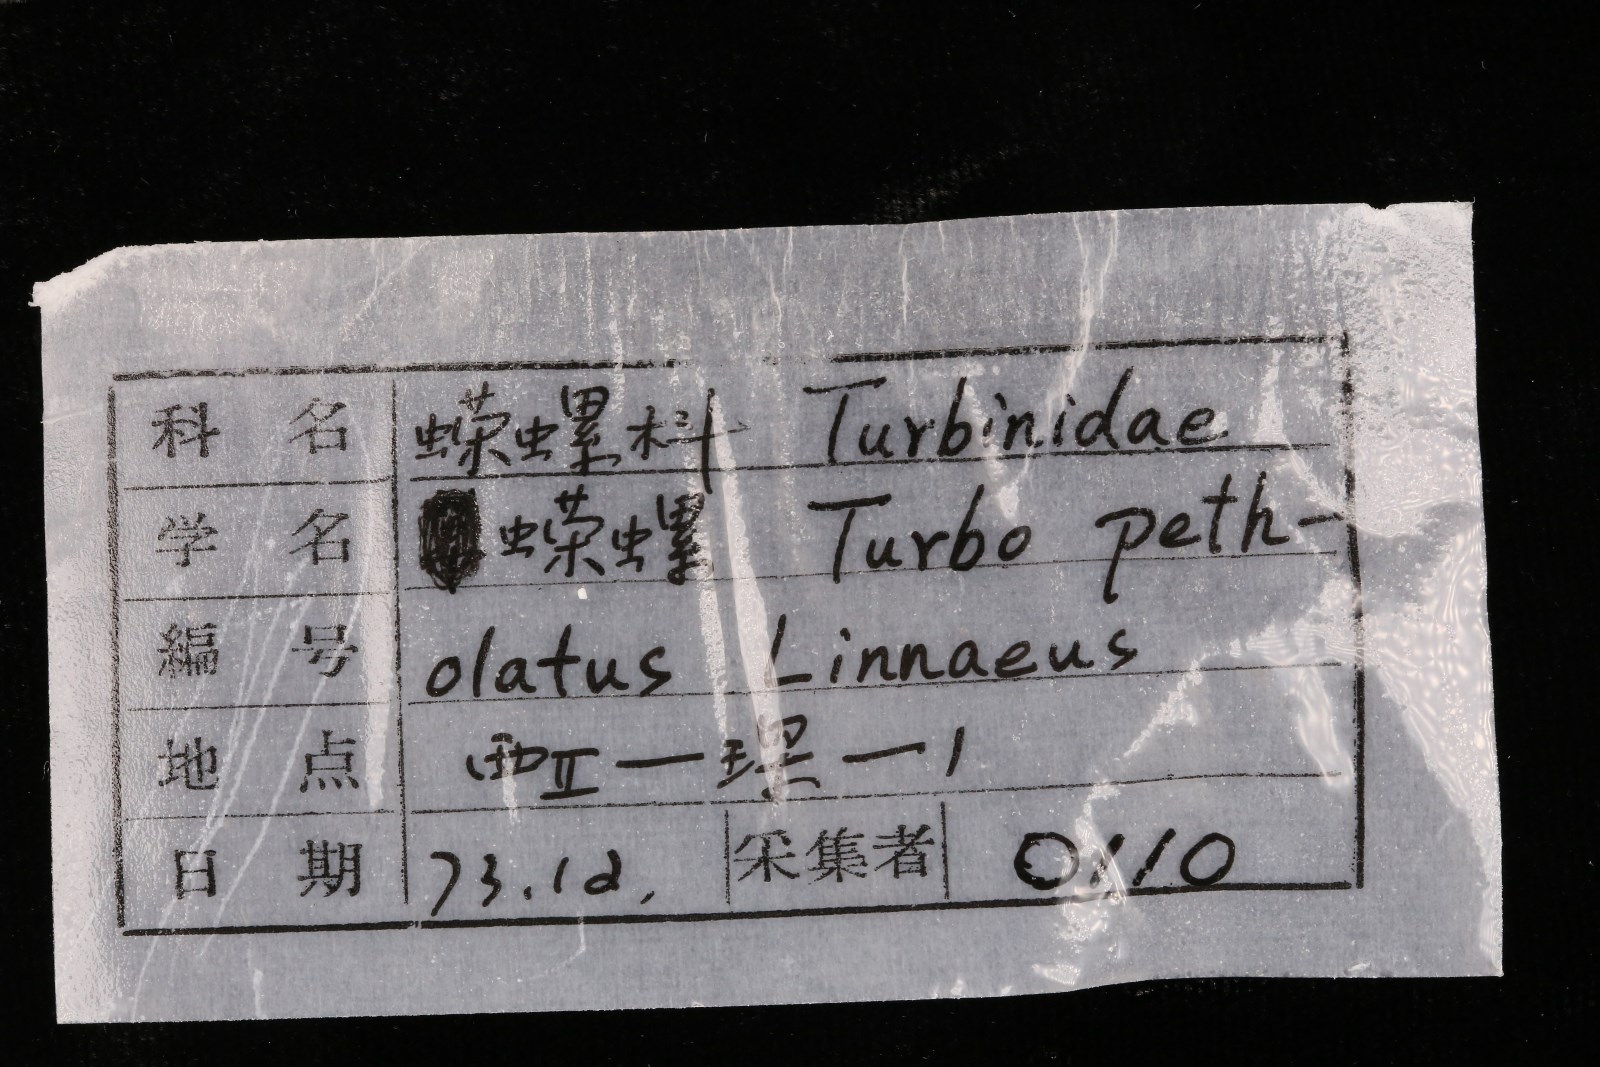 科 名 蝾螺科 Turbinidae
学 名 蝾螺 Turbo peth-
编 号 olatus Linnaeus
地 点 西Ⅱ—琛—1
日 期 73.12. 采集者 0110